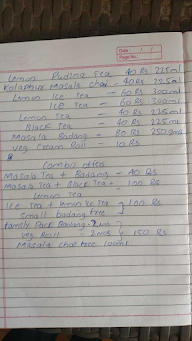 Date
Page No.
Lemon Pudina Tea 40 Rs 225ml
Kolhapur Masala chai - 40 Rs 225ml
Lemon Ice Tea - 60 Rs 300ml
Ice Tea - 60 Rs 300ml
Lemon Tea - 40 Rs 225ml
Black Tea - 40 Rs 225ml
Masala Badang - 80 Rs 250gms
Veg Cream Roll 10 Rs
Combo offer
Masala Tea + Badang - 40 Rs
Masala Tea + Black Tea + 100 Rs
Lemon Tea
Ice Tea + Lemon Ice Tea } 100 Rs
Small badang free
Family Pack Badang -
Veg Roll 2 } 150 Rs
Masala chai free 100ml